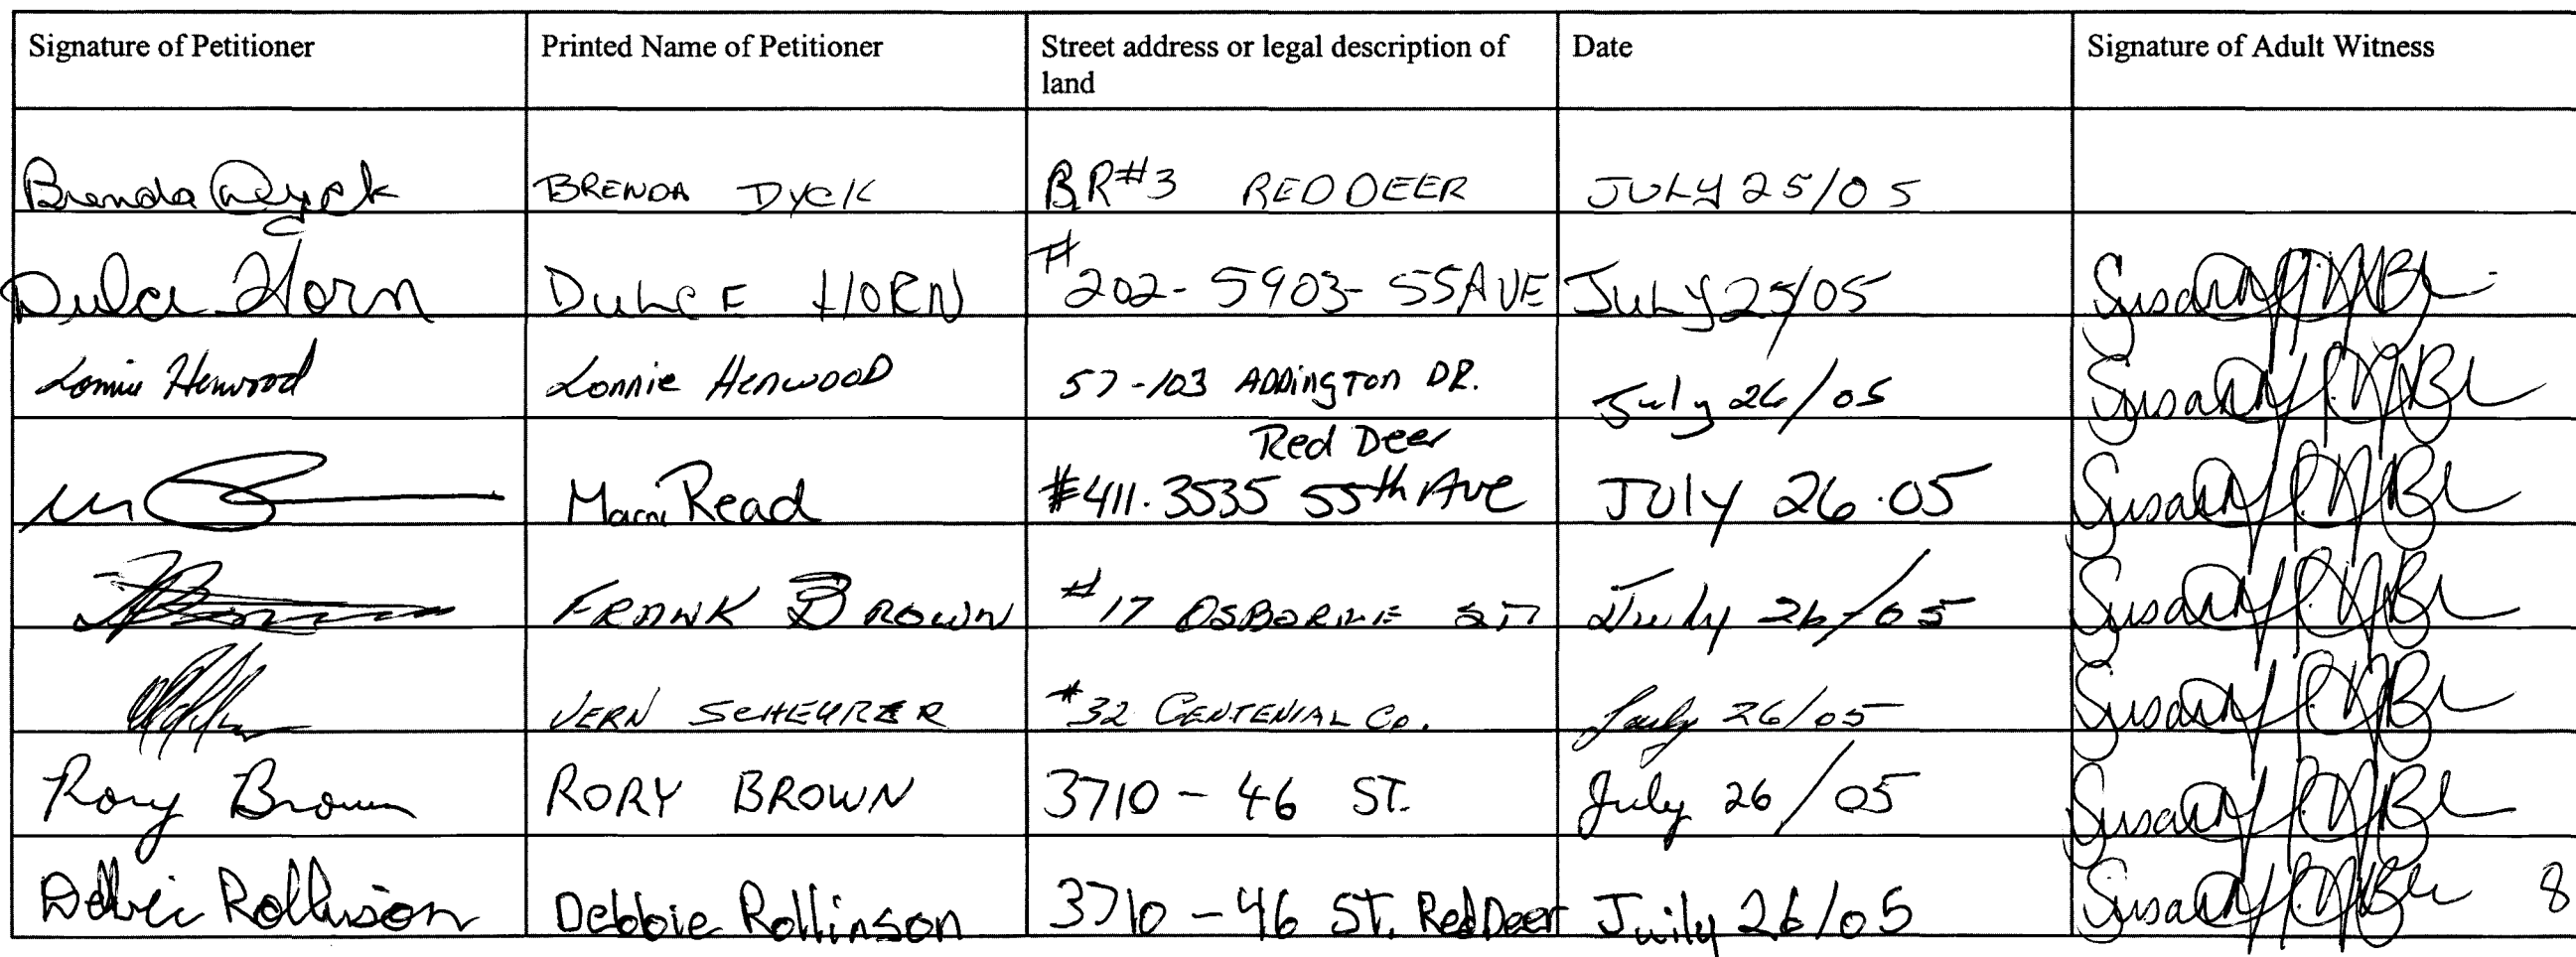 Signature of Petitioner Printed Name of Petitioner Street address or legal description of Date Signature of Adult Witness
land
Brenda Dyck BRENDA DYCK BR#3 RED DEER JULY 25/05
Dulce Horn DULCE HORN #202-5903-55AVE JULY 25/05 Susan
Lonnie Henwood Lonnie HENWOOD 57-103 ADDINGTON DR. July 26/05 Susan
Red Deer
Marni Read #411.3535 55th Ave JULY 26.05 Susan
FRANK BROWN #17 OSBORNE ST July 26/05 Susan
VERN SCHEURER #32 CENTENIAL CR. July 26/05 Susan
Rory Brown RORY BROWN 3710 - 46 ST. July 26/05 Susan
Debbie Rollinson Debbie Rollinson 3710 - 46 ST. Red Deer Juily 26/05 Susan 8